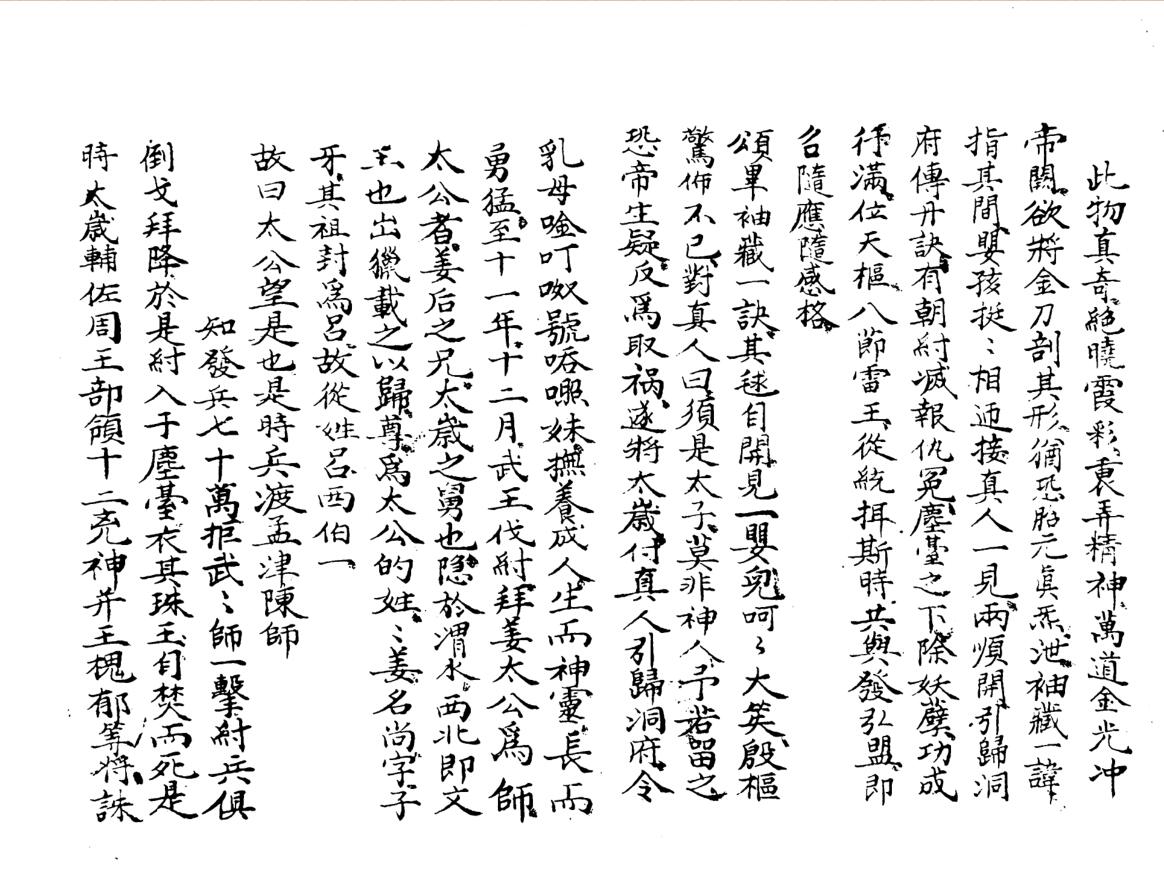 此物真奇絕曉霞彩裹弄精神萬道金光冲
帝闕欲將金刀剖其形猶恐胎元眞炁泄袖藏一諱
指其間嬰孩挺〻相迊接真人一見兩煩開引歸洞
府傳丹訣有朝紂滅報仇冤塵臺之下除妖孽功成
行滿位天樞八節雷王從統揖斯時共與發弘盟即
召隨應隨感格
頌畢袖藏一訣其毬自開見一嬰兒呵〻大笑殷樞
驚怖不已對真人曰須是太子莫非神人予若留之
恐帝生疑反爲取禍遂將太歲付真人引歸洞府令
乳母唫叮呶號哌嘿妹撫養成人生而神靈長而
勇猛至十一年十二月武王伐紂拜姜太公爲師
太公者姜后之兄太歲之舅也隱於渭水西北即文
王也出獵載之以歸尊爲太公的姓〻姜名尚字子
牙其祖封爲呂故從姓呂西伯一
故曰太公望是也是時兵渡孟津陳師
知發兵七十萬拒武〻師一擊紂兵俱
倒戈拜降於是紂入于塵臺衣其珠玉自焚而死是
時太歲輔佐周王部領十二充神并王槐郁等將誅